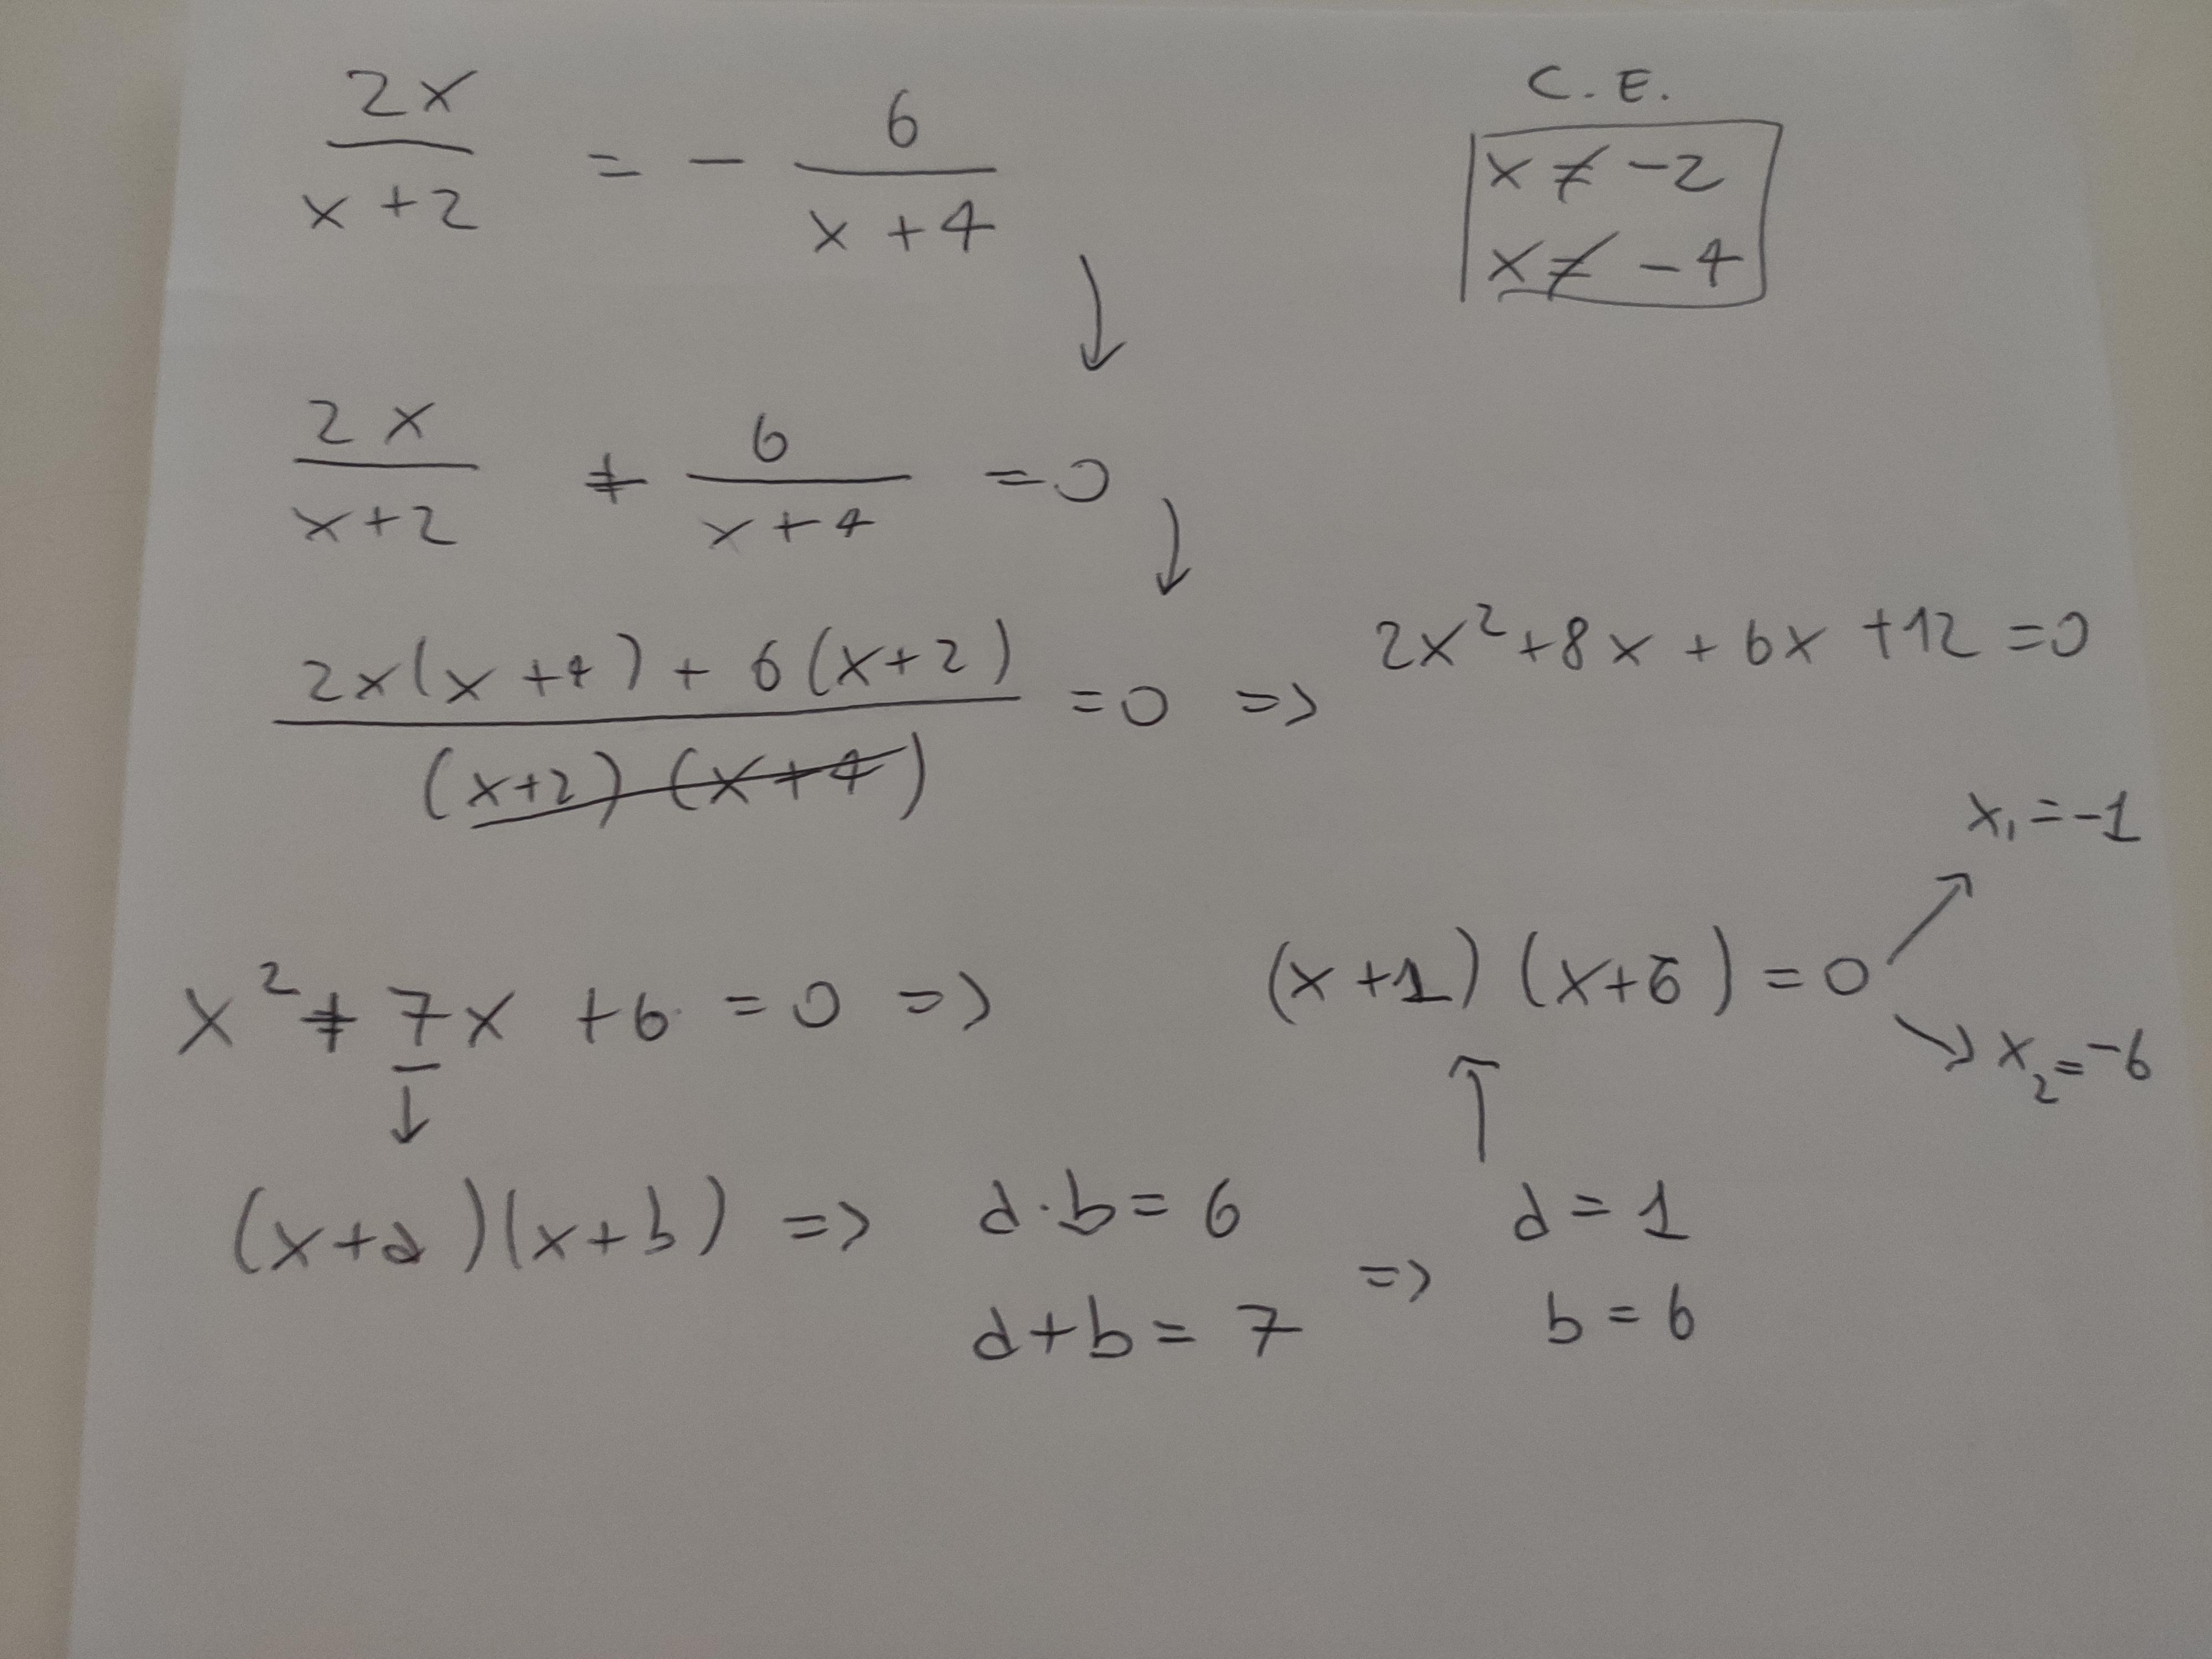 2x/(x+2) = - 6/(x+4)
C.E.
x ≠ -2
x ≠ -4
2x/(x+2) + 6/(x+4) = 0
(2x(x+4) + 6(x+2))/((x+2)(x+4)) = 0 => 2x²+8x+6x+12=0
x²+7x+6=0 => (x+1)(x+6)=0
x₁=-1
x₂=-6
(x+a)(x+b) => a·b=6
a+b=7
=>
a=1
b=6